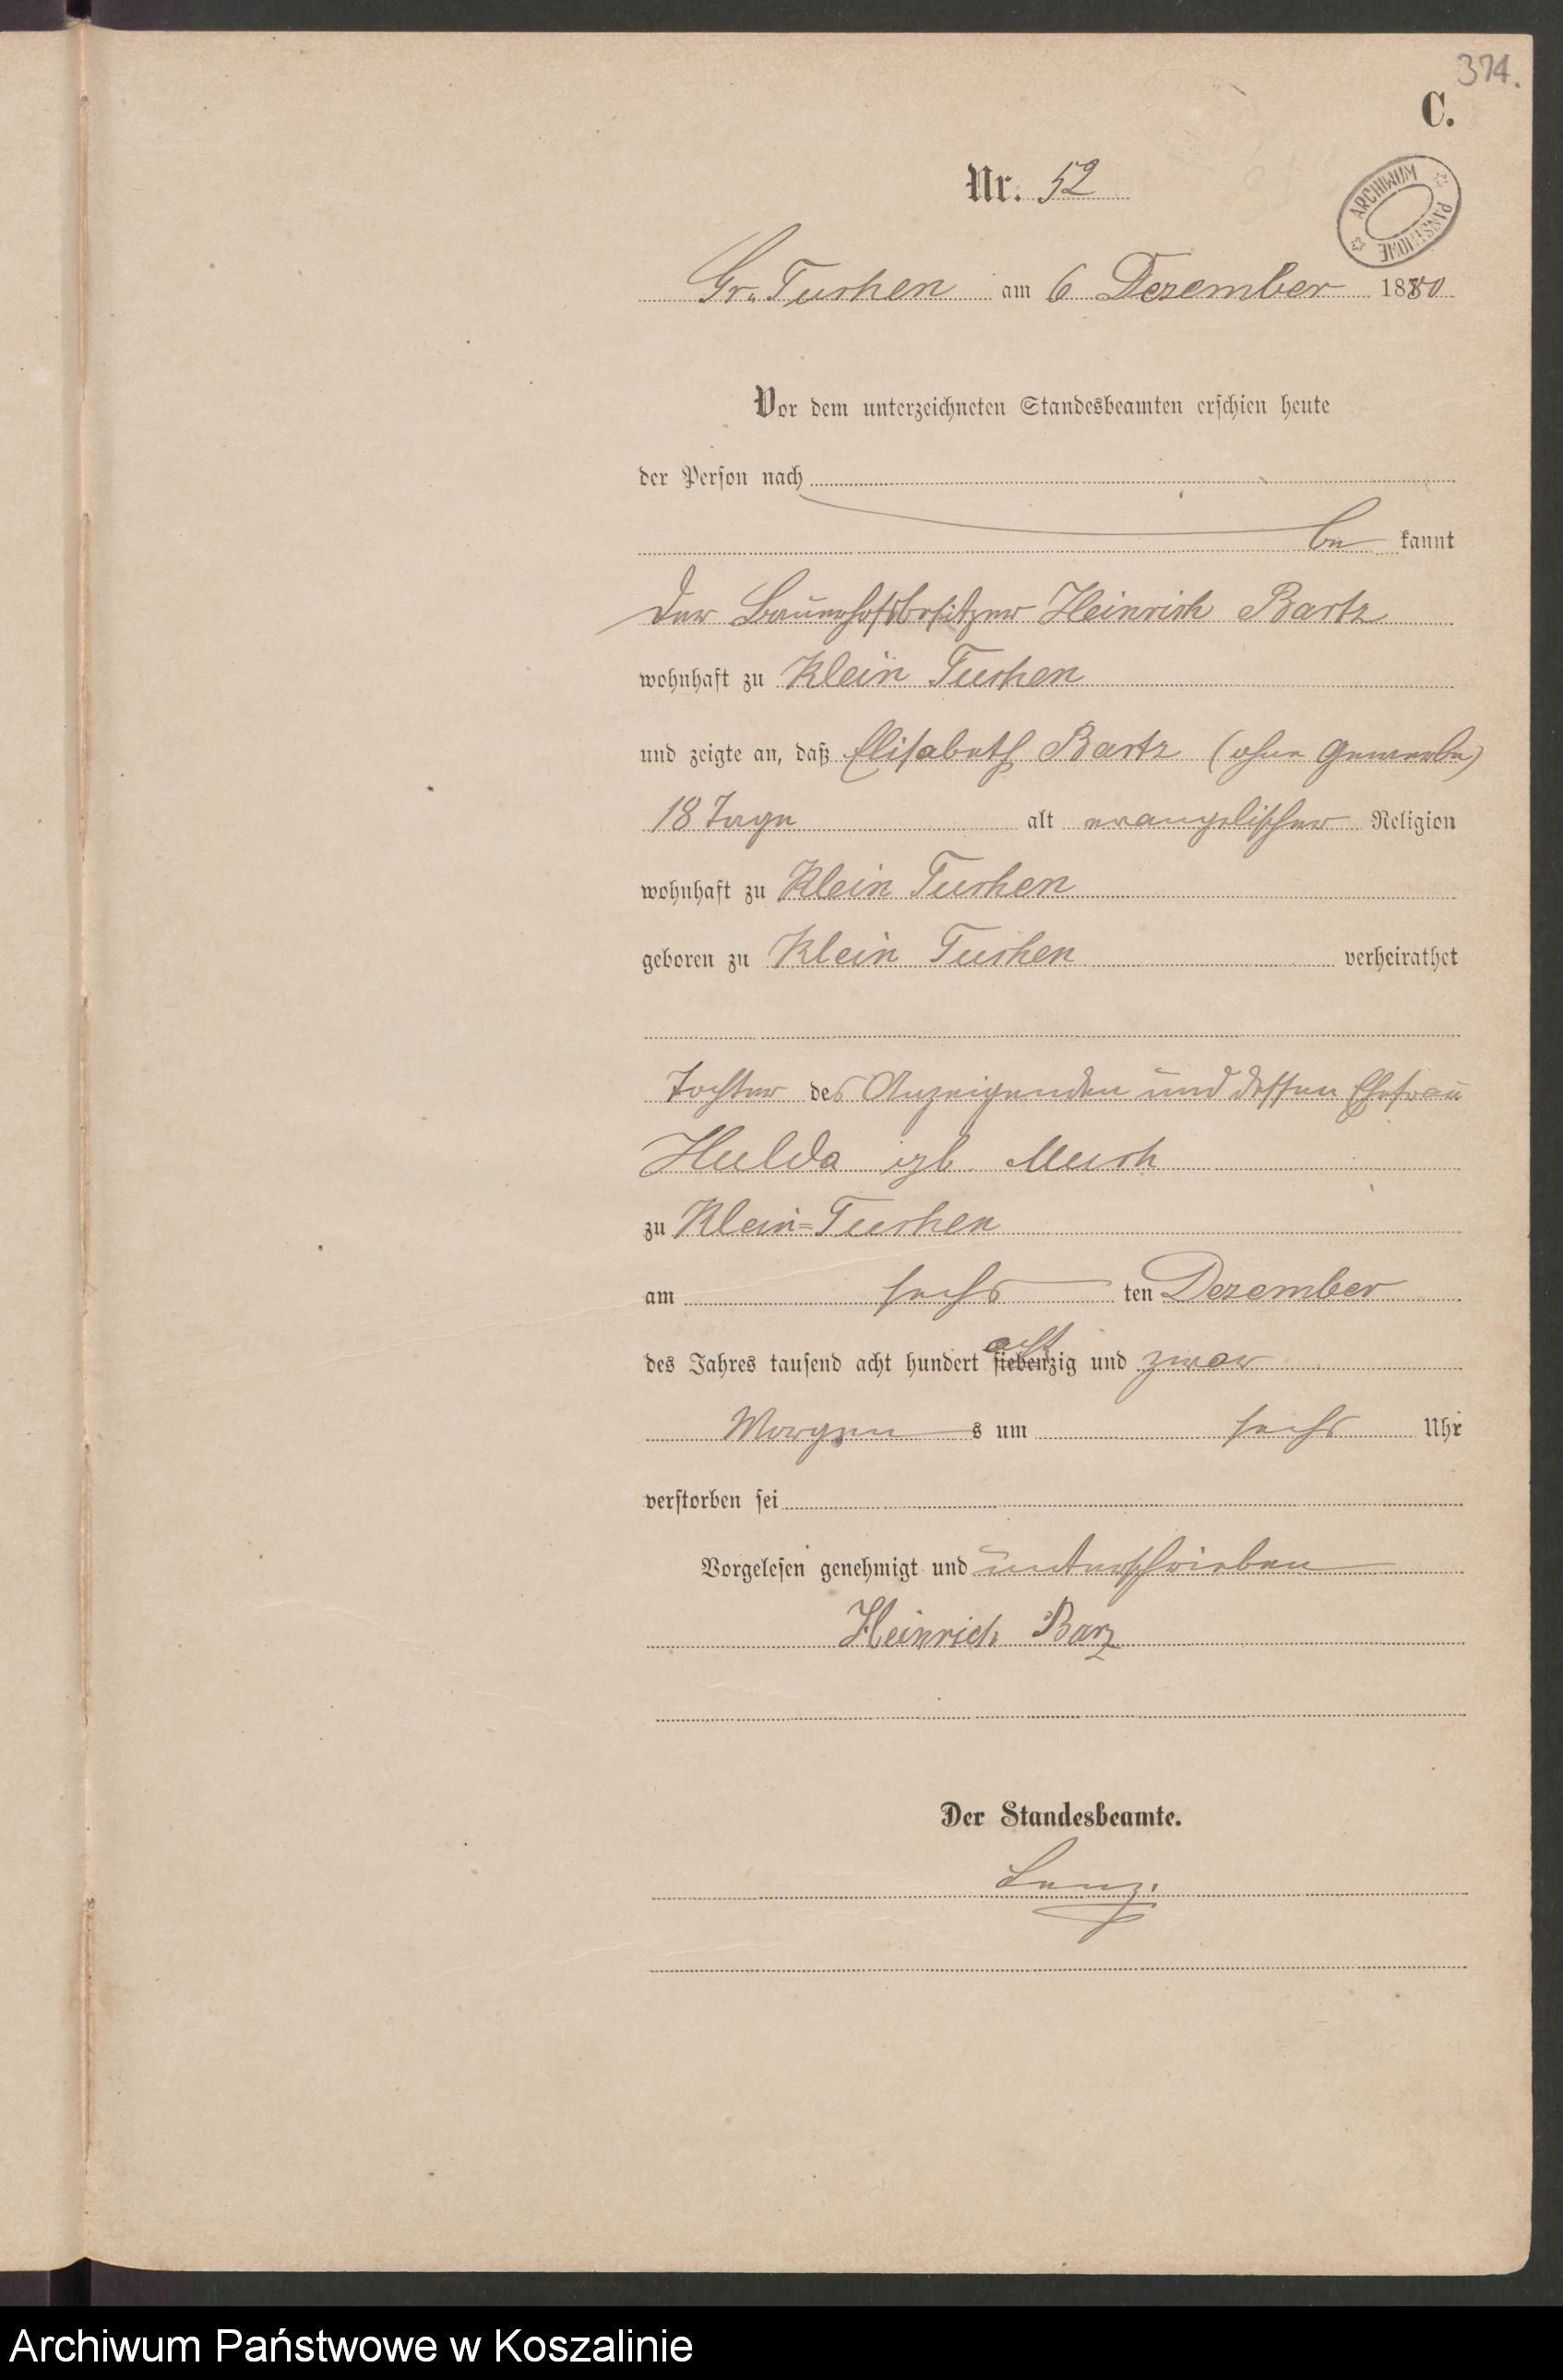 374.
C.
Nr. 52
ARCHIWUM PAŃSTWOWE
Gr. Tuchen am 6 Dezember 1880
Vor dem unterzeichneten Standesbeamten erschien heute
der Person nach
be kannt
der Bauerhofsbesitzer Heinrich Bartz
wohnhaft zu Klein Tuchen
und zeigte an, daß Elisabeth Bartz (ohne Gewerbe)
18 Tage alt evangelischer Religion
wohnhaft zu Klein Tuchen
geboren zu Klein Tuchen verheirathet
Tochter des Anzeigenden und dessen Ehefrau
Hulda
zu Klein-Tuchen
am sechs ten Dezember
des Jahres tausend acht hundert siebenzig acht und zwar
Morgen s um sechs Uhr
verstorben sei
Vorgelesen genehmigt und unterschrieben
Heinrich Barz
Der Standesbeamte.
Archiwum Państwowe w Koszalinie